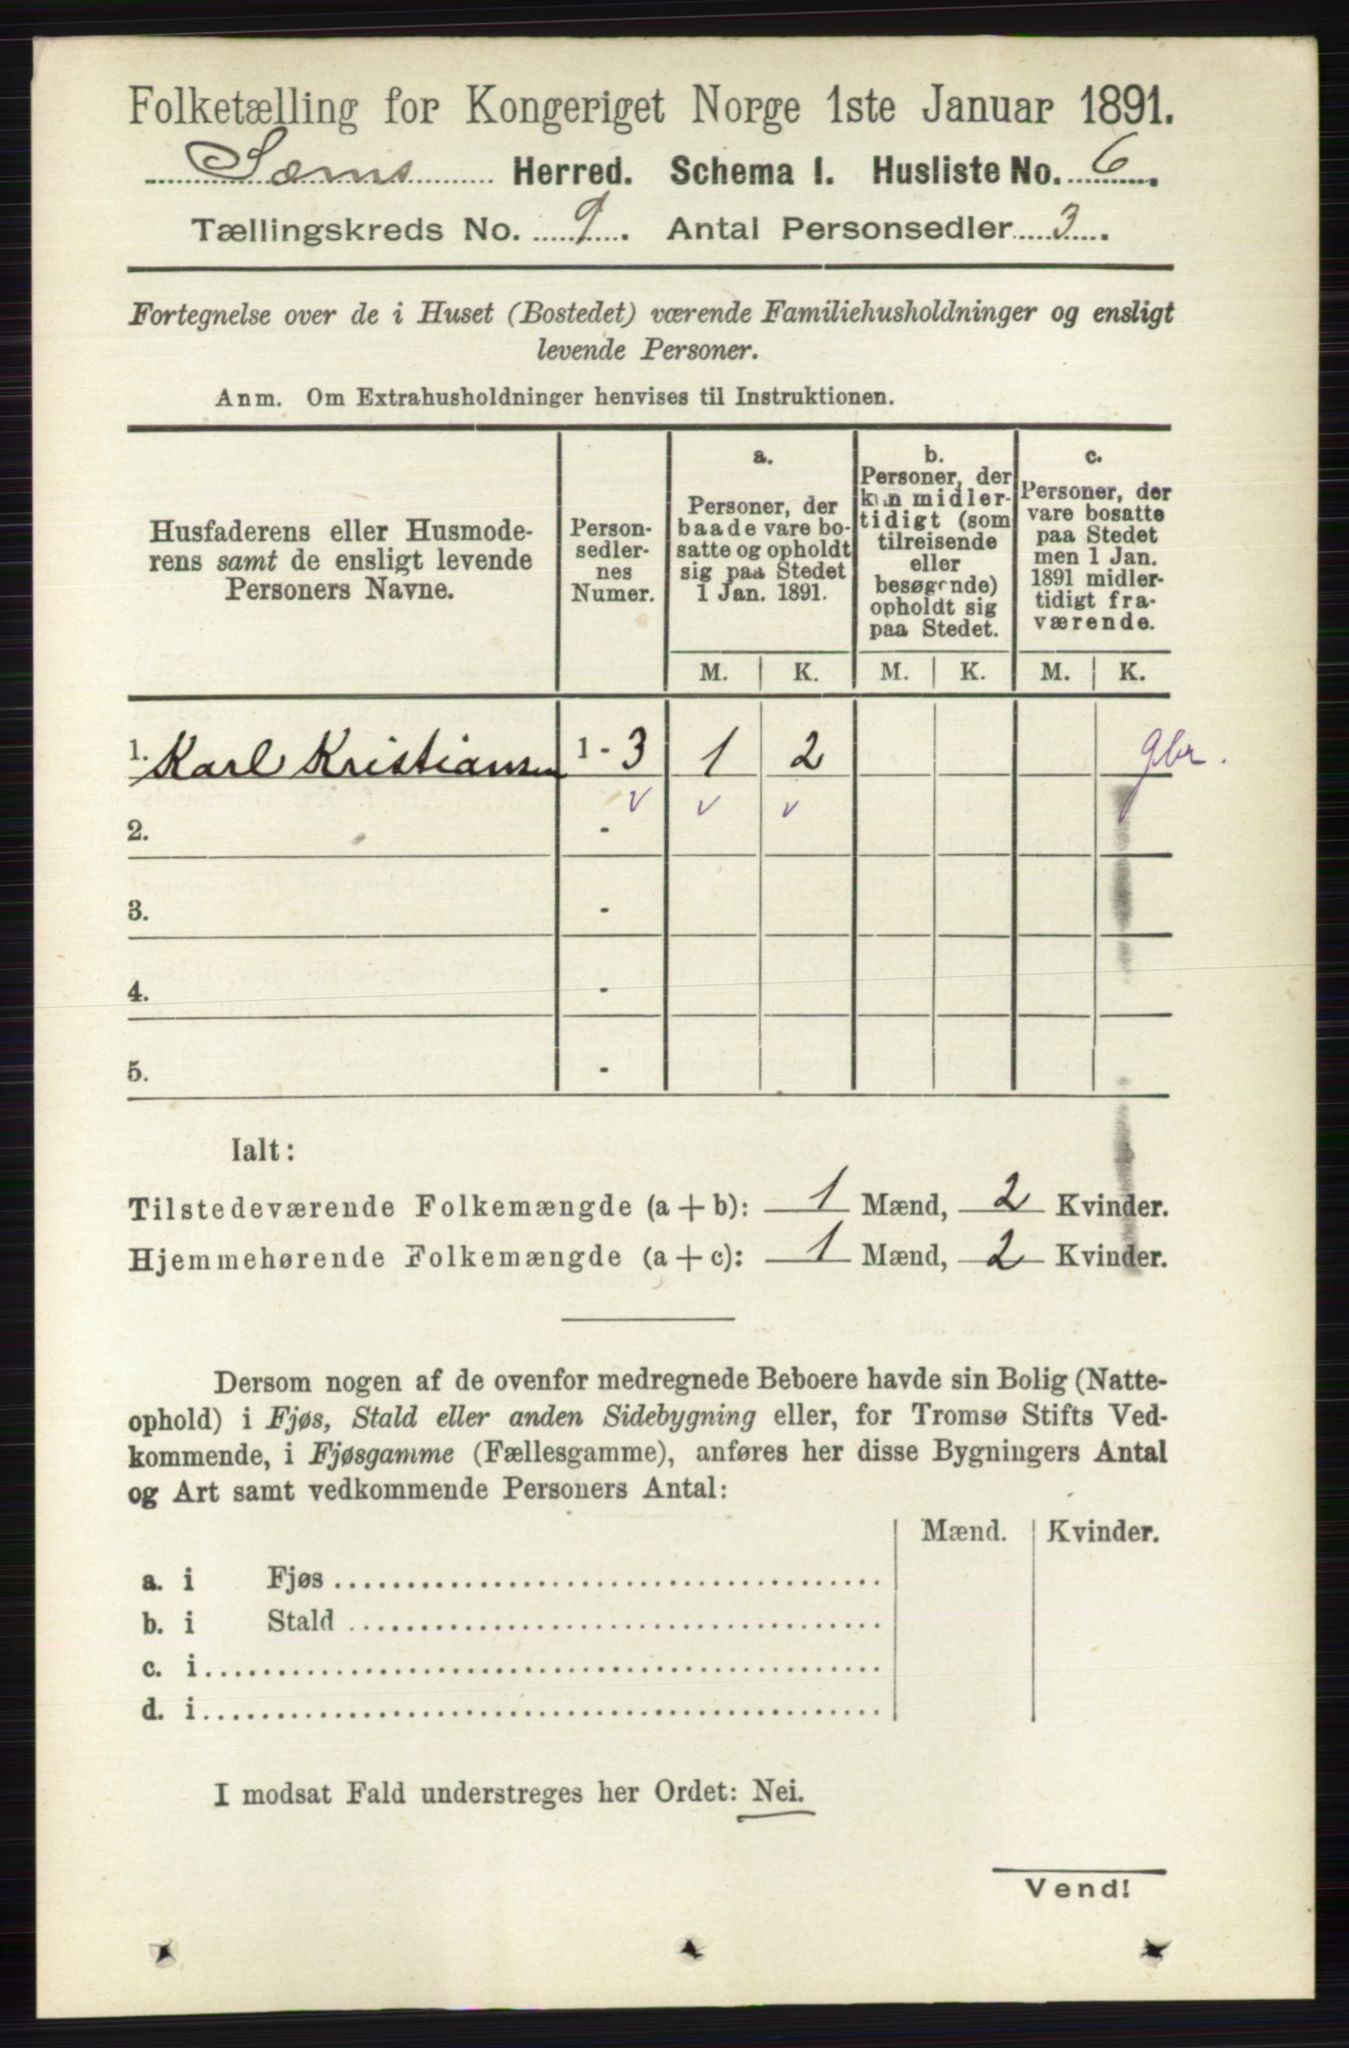 Folketælling for Kongeriget Norge 1ste Januar 1891.
Sæms Herred. Schema 1. Husliste No. 6.
Tællingskreds No. 9. Antal Personsedler 3.
Fortegnelse over de i Huset (Bostedet) værende Familiehusholdninger og ensligt
levende Personer.
Anm. Om Extrahusholdninger henvises til Instruktionen.
Husfaderens eller Husmode-
rens samt de ensligt levende
Personers Navne.
Person-
sedler-
nes
Numer.
a.
Personer, der
baade vare bo-
satte og opholdt
sig paa Stedet
1 Jan. 1891.
b.
Personer, der
kun midler-
tidigt (som
tilreisende
eller
besøgende)
opholdt sig
paa Stedet.
c.
Personer, der
vare bosatte
paa Stedet
men 1 Jan.
1891 midler-
tidigt fra-
værende.
M. K. M. K. M. K.
1. Karl Kristiansen 1 - 3 1 2 gbr.
v v v
2. -
3. -
4. -
5. -
Ialt:
Tilstedeværende Folkemængde (a + b): 1 Mænd, 2 Kvinder.
Hjemmehørende Folkemængde (a + c): 1 Mænd, 2 Kvinder.
Dersom nogen af de ovenfor medregnede Beboere havde sin Bolig (Natte-
ophold) i Fjøs, Stald eller anden Sidebygning eller, for Tromsø Stifts Ved-
kommende, i Fjøsgamme (Fællesgamme), anføres her disse Bygningers Antal
og Art samt vedkommende Personers Antal:
Mænd. Kvinder.
a. i Fjøs
b. i Stald
c. i
d. i
I modsat Fald understreges her Ordet: Nei.
Vend!